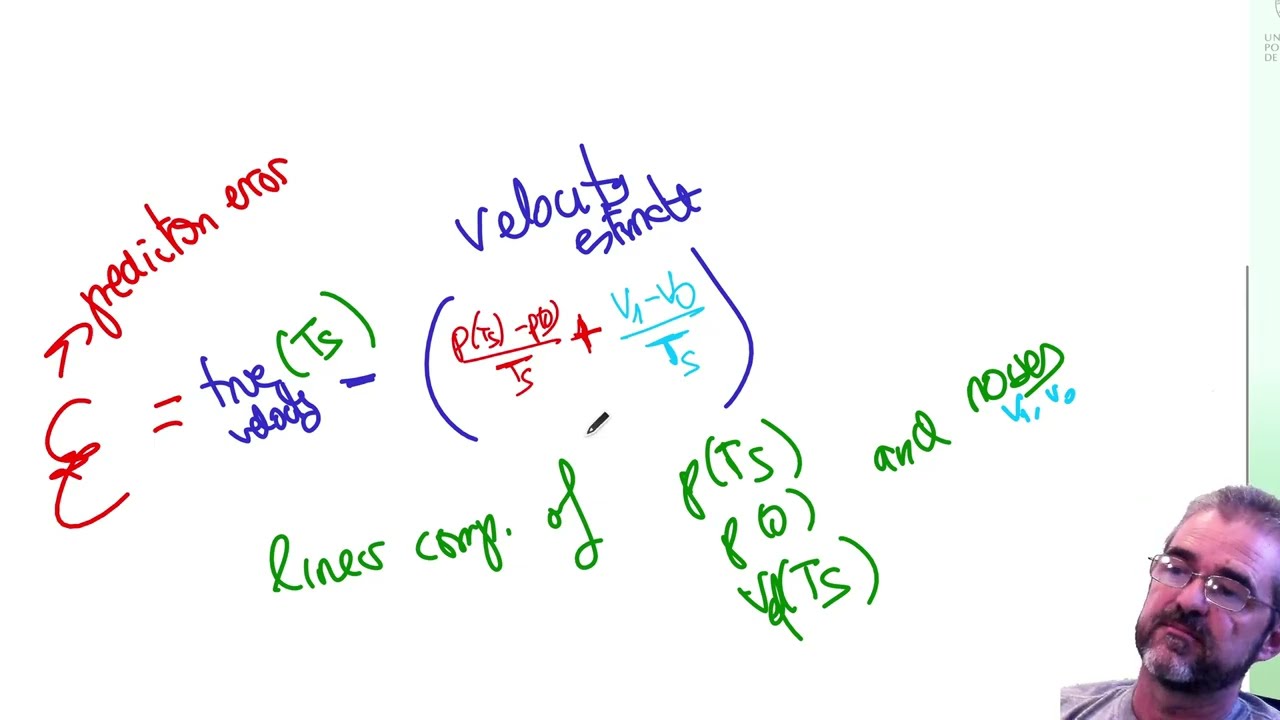 prediction error
velocity
estimate
ε = true velocity (Ts) - ( p(Ts) - p(0) / Ts + v1 - v0 / Ts )
linear comb. of p(Ts) and noises
v1, v0
p(0)
vel(Ts)
UN
PO
DE